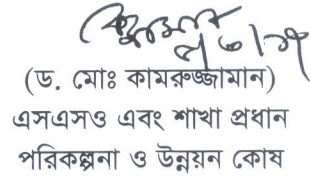 (ড. মোঃ কামরুজ্জামান)
এসএসও এবং শাখা প্রধান
পরিকল্পনা ও উন্নয়ন কোষ